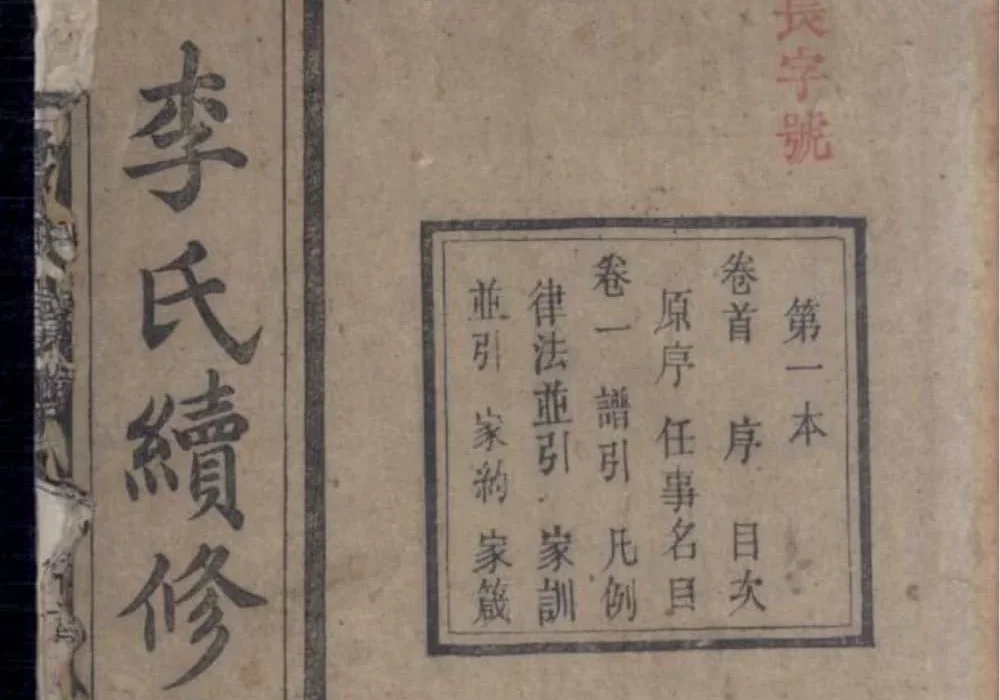 長字號
第一本
卷首 序 目次
原序 任事名目
卷一 譜引 凡例
律法並引 家訓
並引 家約 家箴
李氏續修